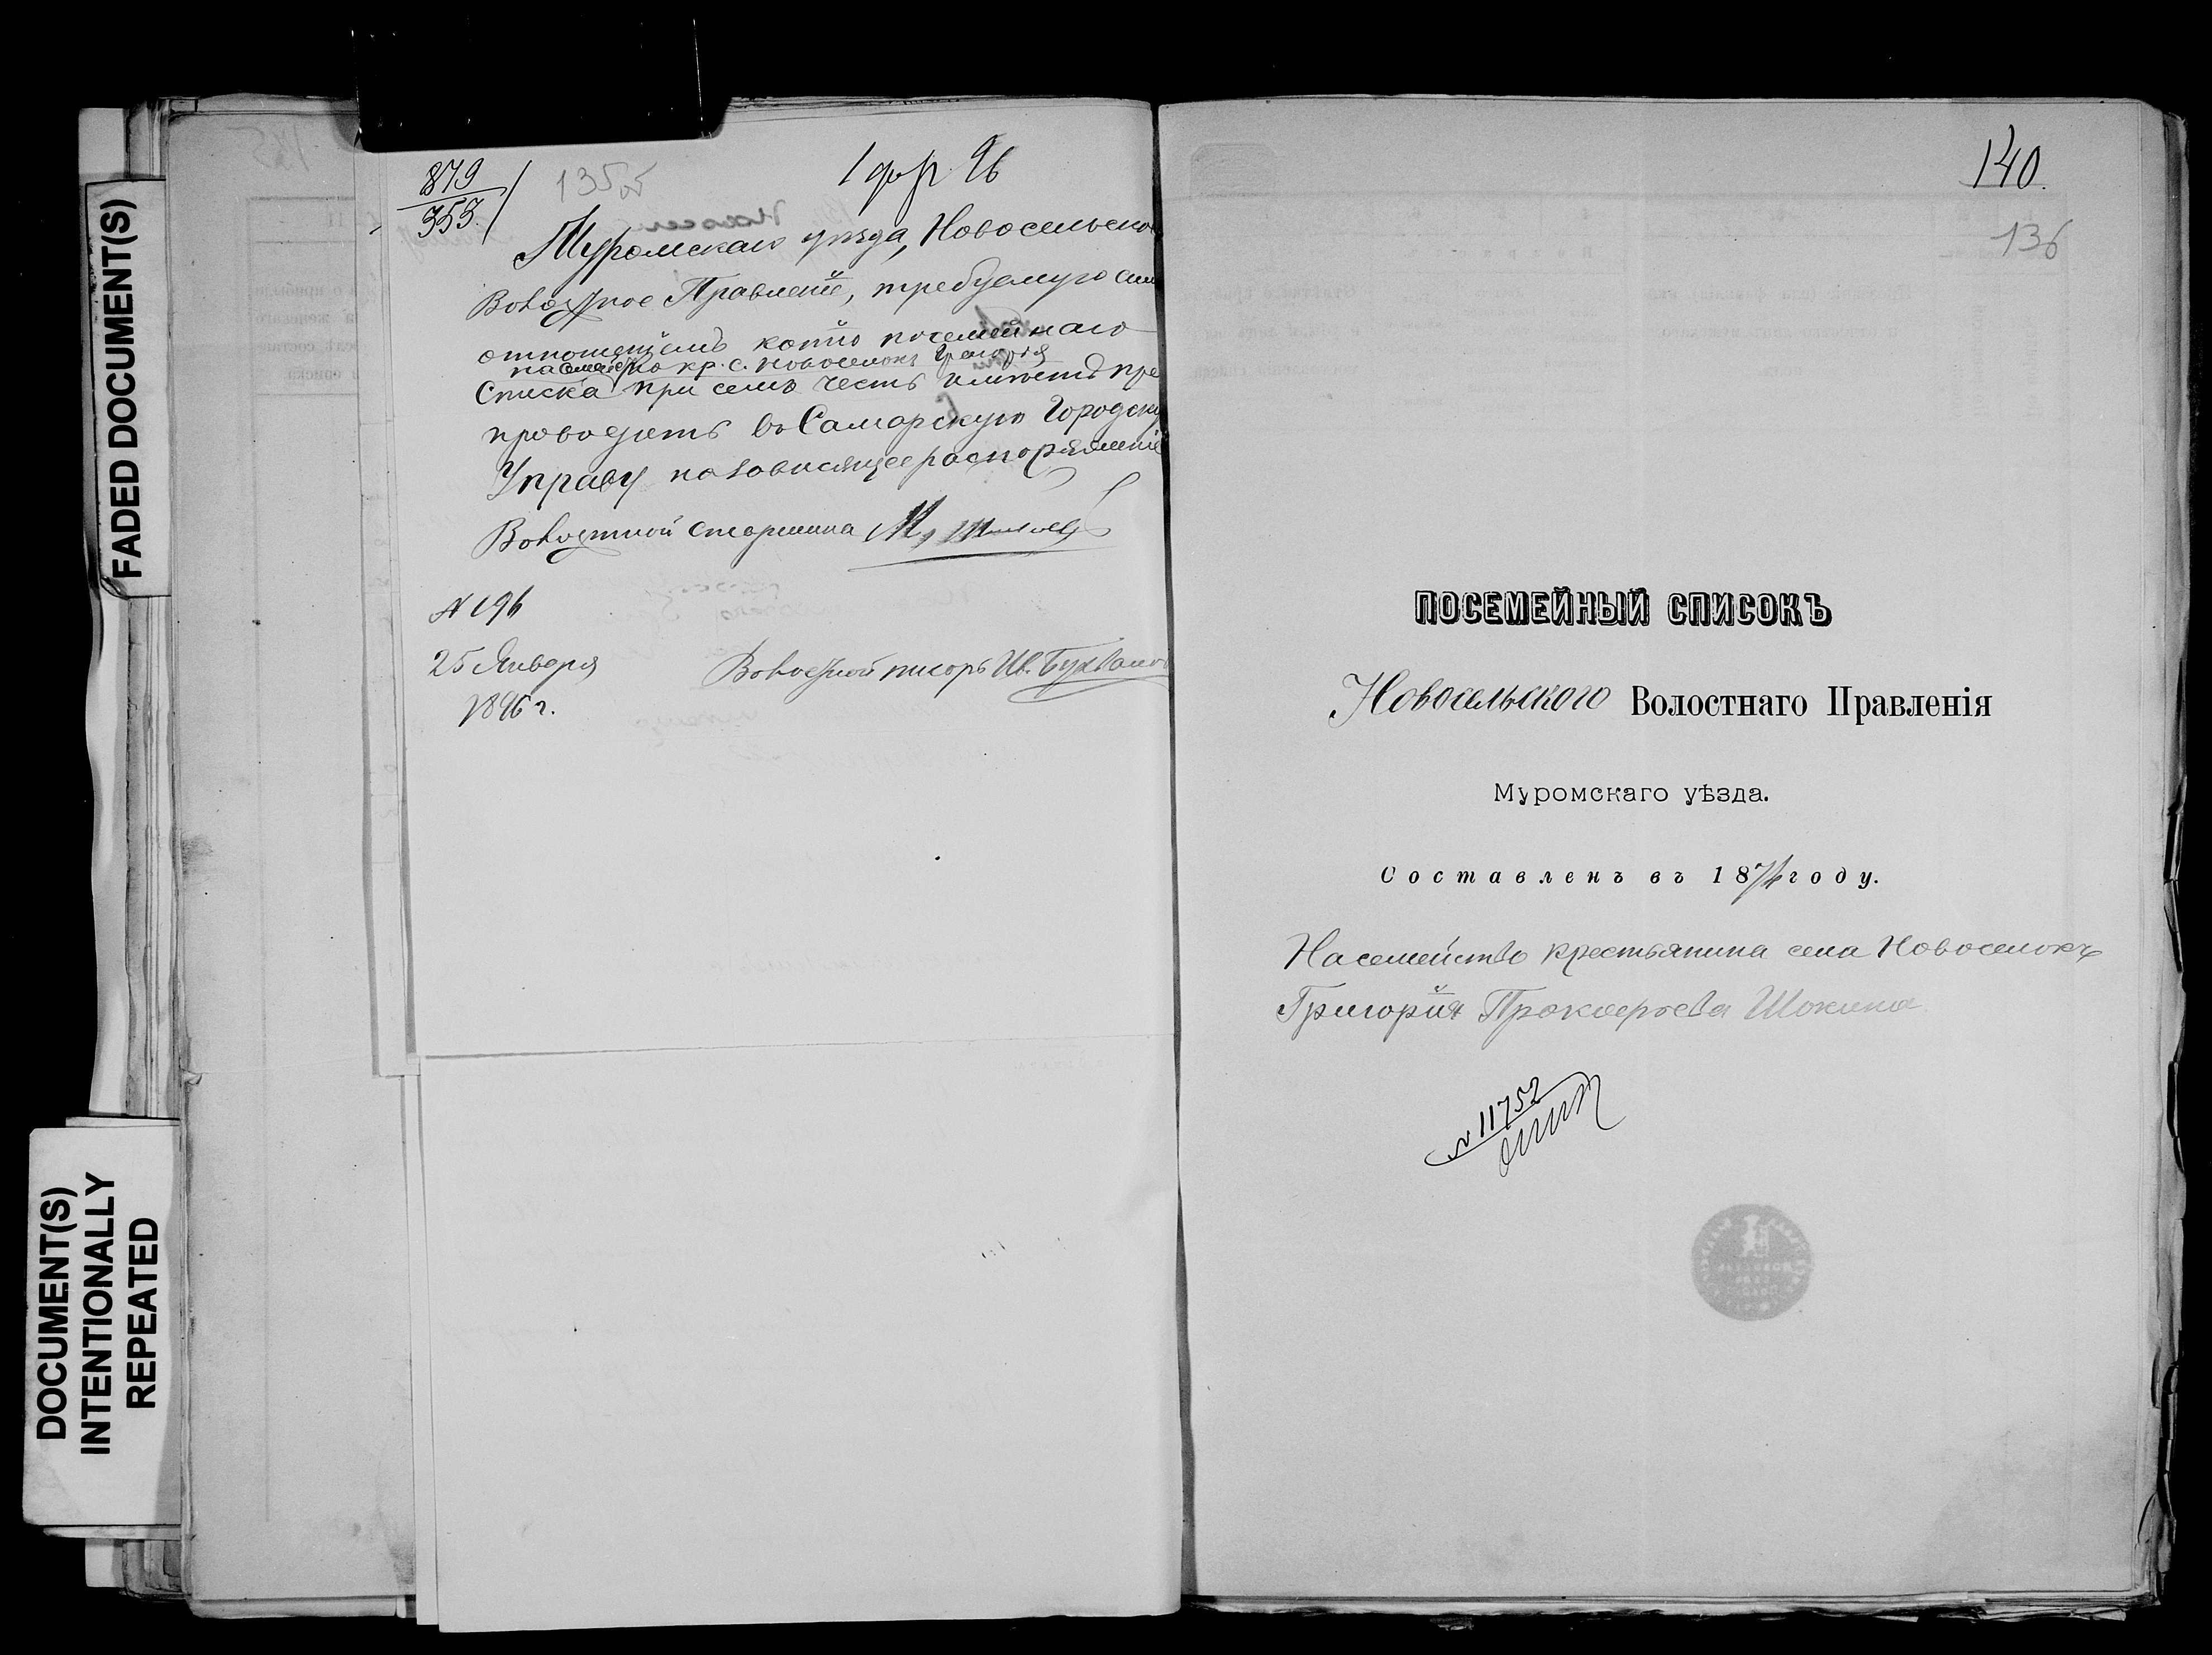 FADED DOCUMENT(S)
DOCUMENT(S)
INTENTIONALLY
REPEATED
879
353
135об
1 фр 96
Муромскаго уѣзда, Новосельско
Волостное Правленіе, требуемую
отношеніемъ копію посемейнаго
на семейство кр. с. Новоселокъ Григорія
Списка при семъ честь имѣетъ пре
проводить въ Самарскую Городску
Управу на зависящее распоряженіе
Волостной старшина
N 196
25 Января
1896 г.
Волостной писарь Ив.
140.
136
ПОСЕМЕЙНЫЙ СПИСОКЪ
Новосельского Волостнаго Правленія
Муромскаго уѣзда.
Составленъ въ 1874 году.
На семейство крестьянина села Новоселокъ
Григорія Прокофьева Шокина
N 11752